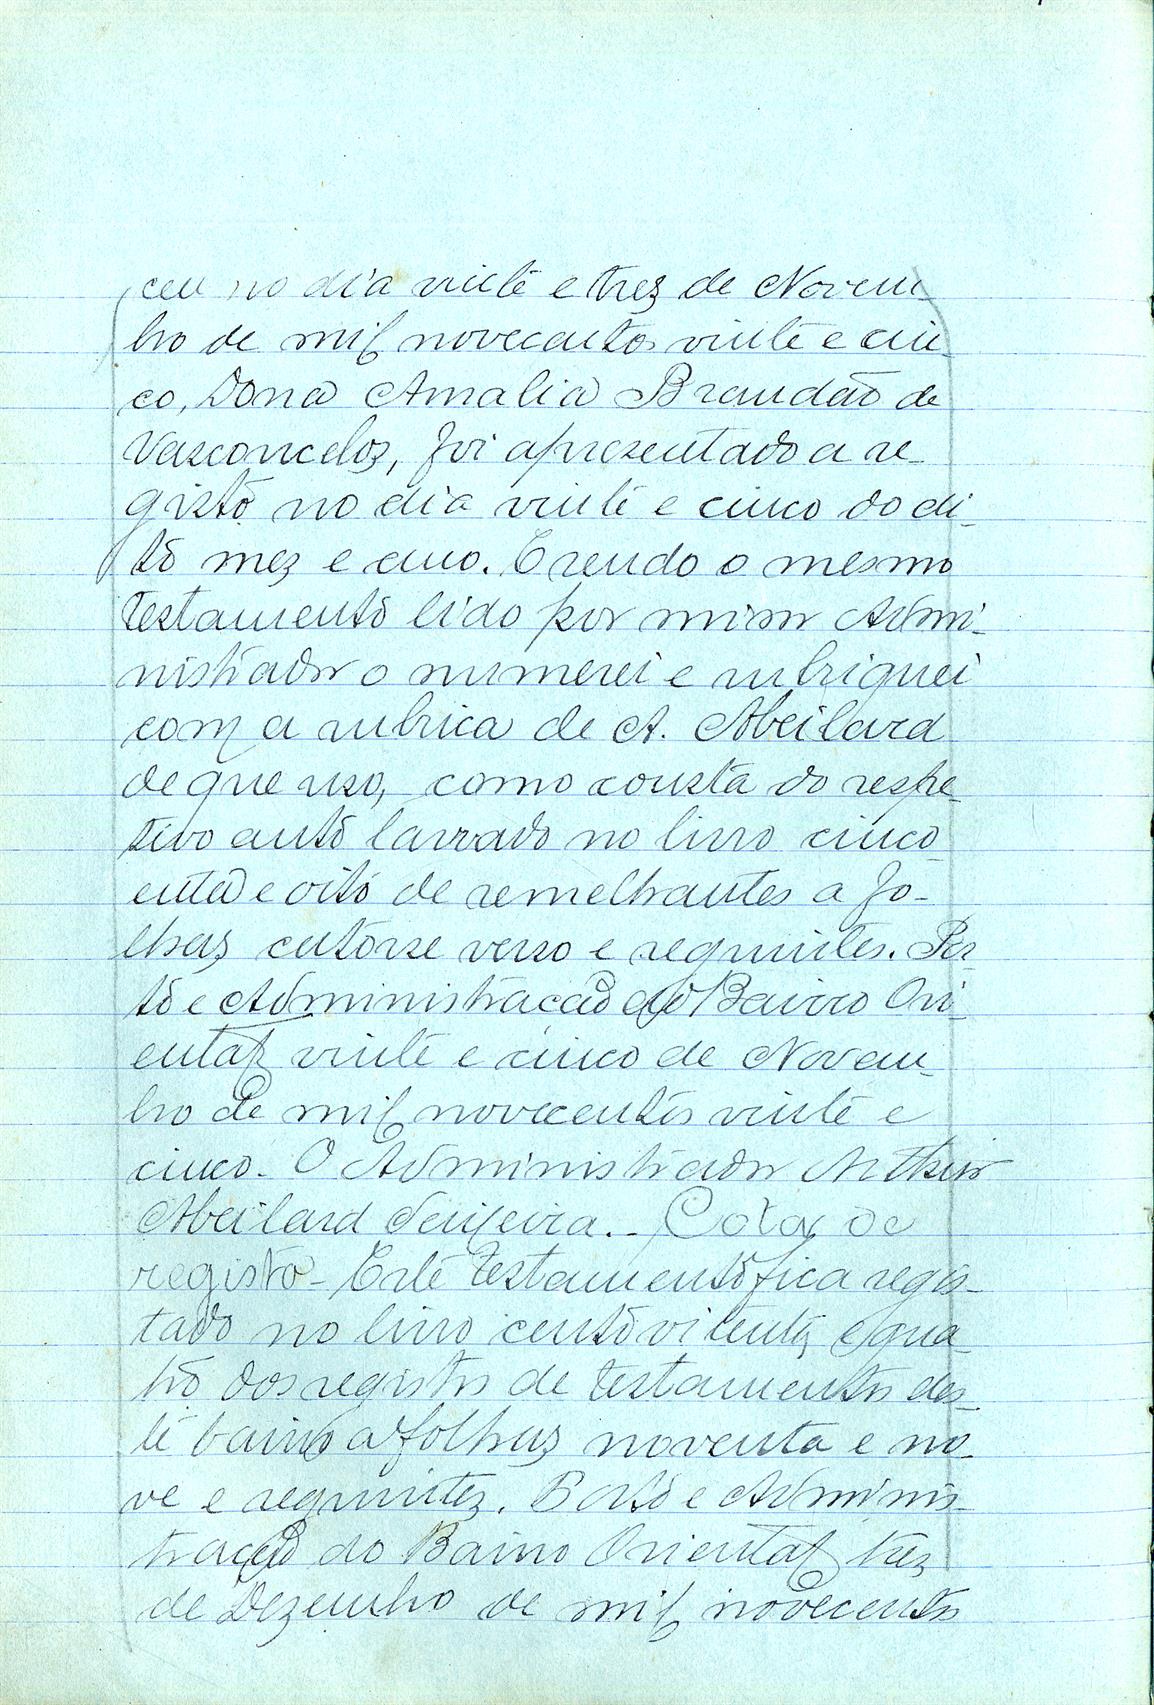 ceu no dia vinte e trez de Novem-
bro de mil novecentos vinte e cin-
co, Dona Amalia Brandão de
Vasconcelos, foi apresentado a re-
gisto no dia vinte e cinco do di-
to mez e ano. E sendo o mesmo
testamento lido por mim Admi-
nistrador o numerei e rubriquei
com a rubrica de A. Abeilard
de que uso, como consta do respe-
tivo auto lavrado no livro cinco
enta e oito de semelhantes a fo-
lhas catorse verso e seguintes. Por-
to e Administracão do Bairro Ori-
ental vinte e cinco de Novem-
bro de mil novecentos vinte e
cinco. O Administrador Arthur
Abeilard Teixeira. - Cota de
registo - Este testamento fica regis-
tado no livro cento vitenta e qua-
tro dos registos de testamentos des-
te bairro a folhas noventa e no-
ve e seguintes. Porto e Adminis-
tração do Bairro Oriental trez
de Dezembro de mil novecentos